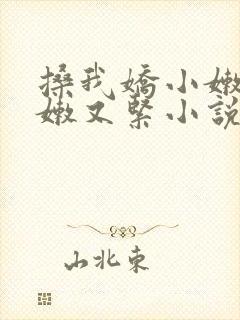 搡我嬌小嫩
嫩又緊小說
山北東